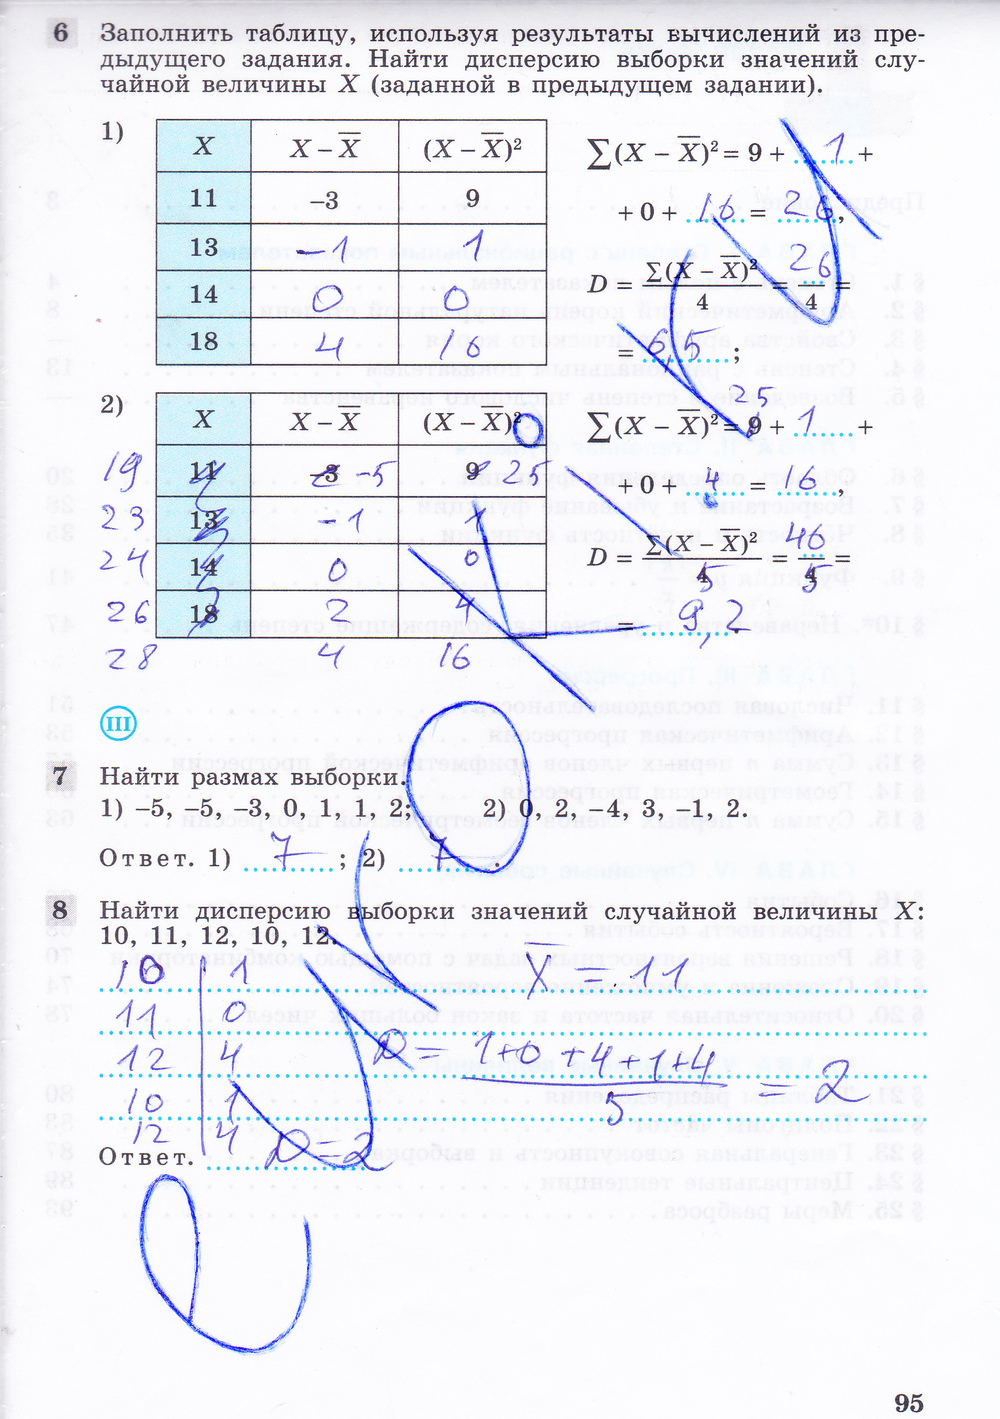 6 Заполнить таблицу, используя результаты вычислений из пре-
дыдущего задания. Найти дисперсию выборки значений слу-
чайной величины X (заданной в предыдущем задании).
1)
X | X – X̅ | (X – X̅)²
11 | –3 | 9
13 | –1 | 1
14 | 0 | 0
18 | 4 | 16
∑(X – X̅)² = 9 + 1 +
+ 0 + 16 = 26,
D = ∑(X – X̅)²/4 = 26/4 =
= 6,5 ;
2)
X | X – X̅ | (X – X̅)²
19 11 | –3 –5 | 9 25
23 13 | –1 | 1
24 14 | 0 | 0
26 18 | 2 | 4
28 | 4 | 16
25
∑(X – X̅)² = 9 + 1 +
+ 0 + 4 = 16,
D = ∑(X – X̅)²/5 = 46/5 =
= 9,2.
III
7 Найти размах выборки.
1) –5, –5, –3, 0, 1, 1, 2; 2) 0, 2, –4, 3, –1, 2.
Ответ. 1) 7 ; 2) 7 .
8 Найти дисперсию выборки значений случайной величины X:
10, 11, 12, 10, 12.
10 | 1 X̅ = 11
11 | 0
12 | 4 D = 1+0+4+1+4/5 = 2
10 | 1
12 | 4
Ответ. D = 2
95